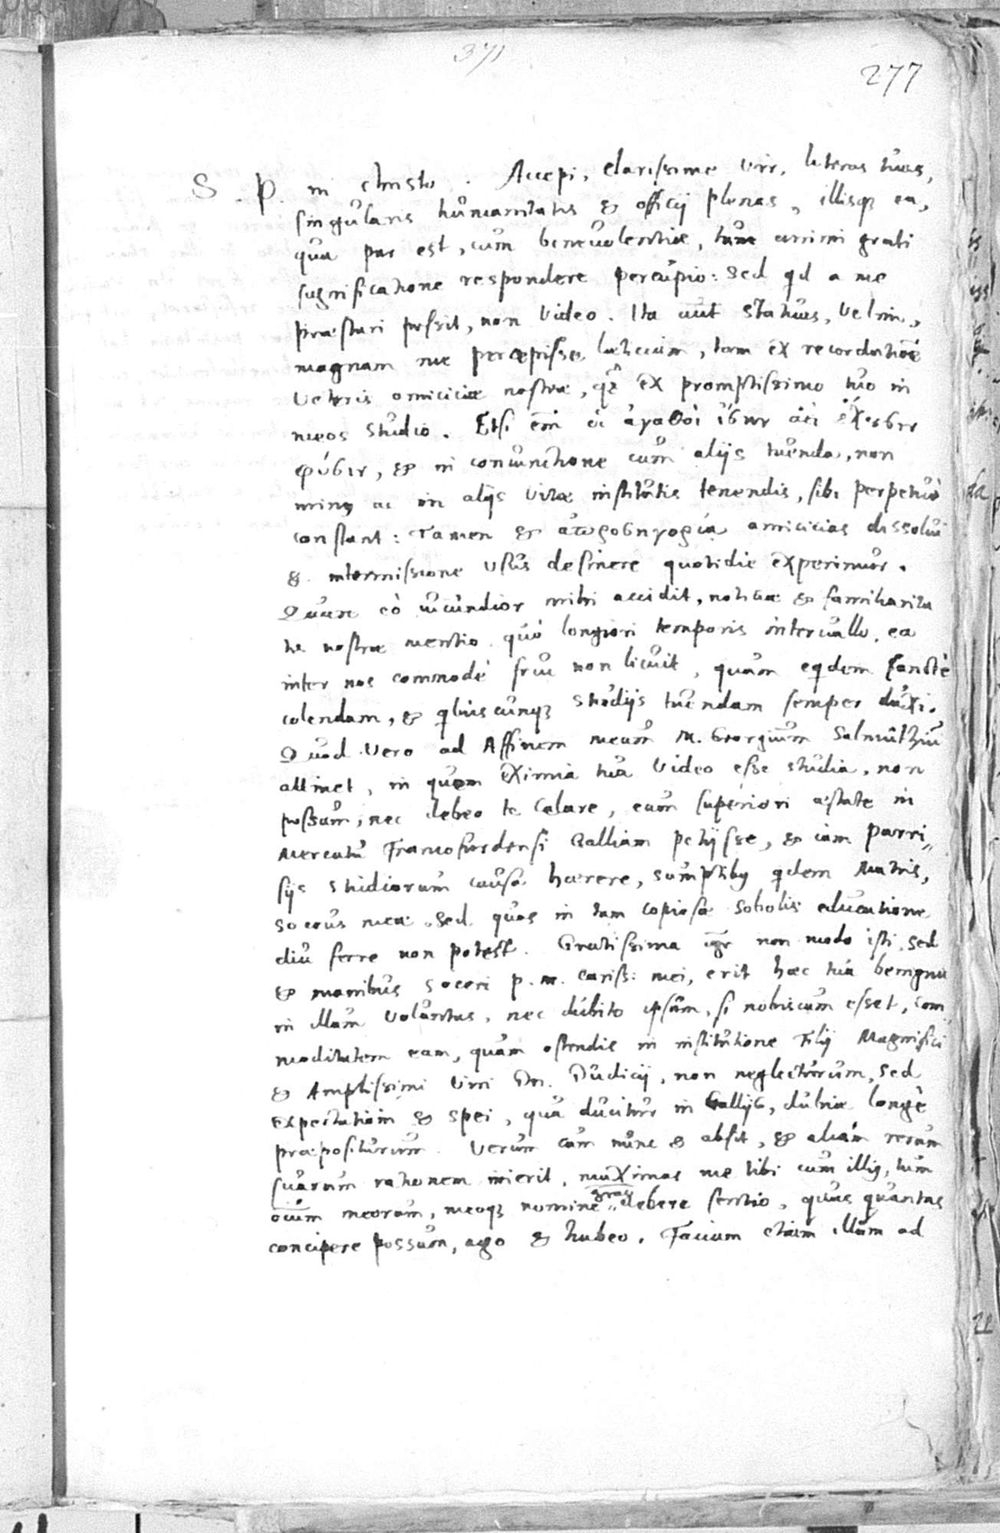 371
277
S. P. in Christo. Accepi, clarissime vir, literas tuas,
singularis humanitatis & officij plenas, illisq; ea,
qua par est, cum benevolentiae, tum animi grati
significatione respondere percupio: sed qd a me
praestari possit, non video. Ita aut statuas, velim,
magnam me percepisse laeticiam, tam ex recordatioē
veteris amiciciae nostrae, q̃ ex promptissimo tuo in
meos studio. Etsi em̄ οἱ ἀγαθοὶ ἴσην ἀεὶ ἔχουσιν
φύσιν, & in coniunctione cum alijs tuenda, non
minus ac in alijs vitae institutis tenendis, sibi perpetuò
constant: tamen & ἀπροσηγορίᾳ amicicias dissolui
& intermissione usus desinere quotidie experimur.
Quare eò iucundior mihi accidit, notitiae & familiarita
tis nostrae mentio, quò longiori temporis interuallo, ea
inter nos commodè frui non licuit, quam eqdem sanctè
colendam, & qbuscunq; studijs tuendam semper duxi.
Quod vero ad Affinem meum M. Georgium Salmuthziū
attinet, in quem eximia tua video esse studia, non
possum, nec debeo te celare, eum superiori aestate in
mercatu Francofurdensi Galliam petijsse, & iam Parri„
sijs studiorum causa haerere, sumptibg qdem Matris,
socrus meae, sed quos in tam copiosa sobolis educatione
diu ferre non potest. Gratissima igr non modo isti, sed
& manibus soceri p. m. cariss: mei, erit haec tua benigna
in illum voluntas, nec dubito ipsum, si nobiscum esset, com
moditatem eam, quam ostendis in institutione Filij Magnifici
& Amplissimi Viri Dn. Dudicij, non neglecturum, sed
expectationi & spei, qua ducitur in Gallijs, dubiae longè
praepositurum. Verum cum nunc & absit, & aliam rerum
suarum rationem inierit, maximas me tibi cum illig, tum
oīum meorum, meoq; nomine gr̃as debere sentio, quas quantas
concipere possum, ago & habeo. Faciam etiam illum ad